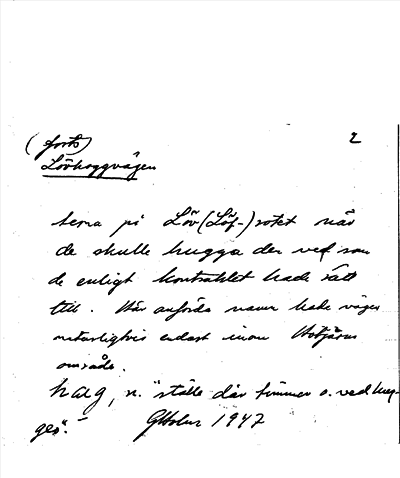 (forts) 2
Lövhoggvägen
terna på Löv(Löf-)rotet när
de skulle hugga den ved som
de enligt kontraktet hade rätt
till. Här anförda namn hade vägen
naturligtvis endast inom
område.
hågg, n. "ställe där timmer o. ved hug-
ges". – 1947